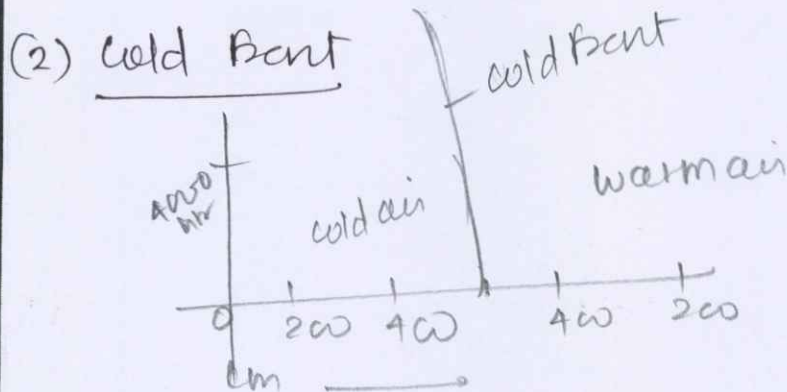 (2) Cold Front
cold Front
warm air
4000
mr
cold air
0 200 400 400 200
km